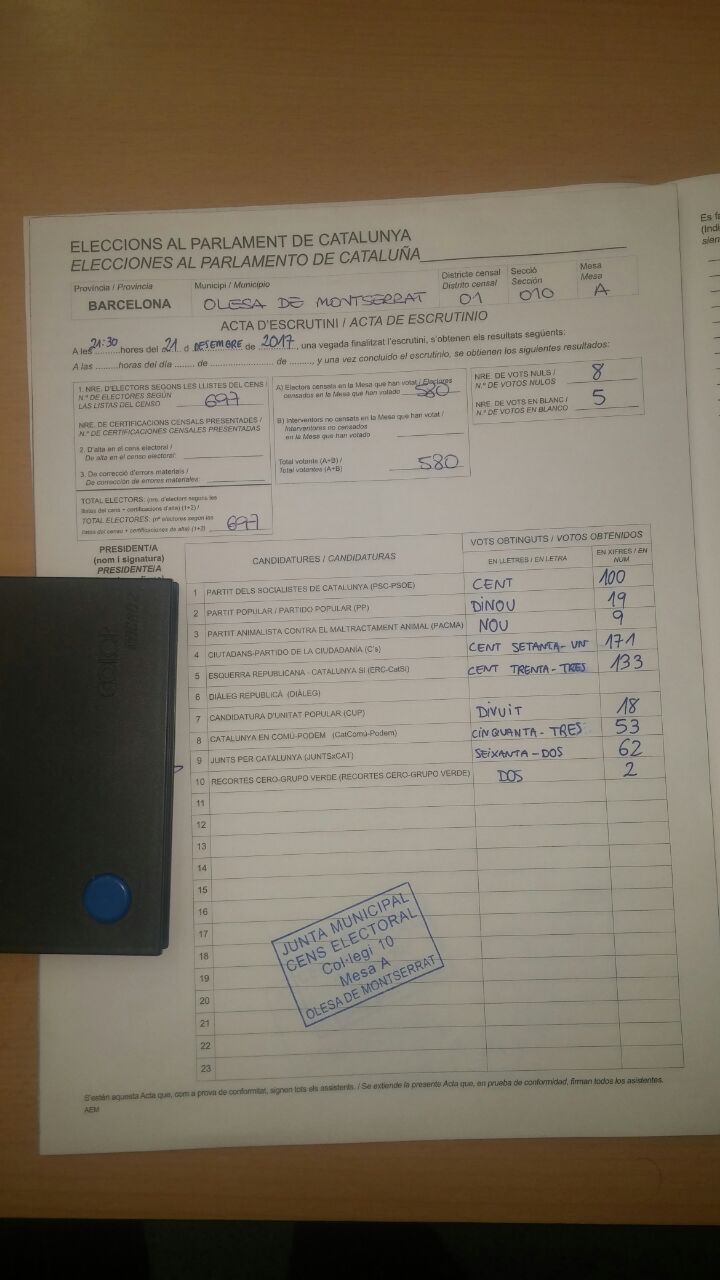 ELECCIONS AL PARLAMENT DE CATALUNYA
ELECCIONES AL PARLAMENTO DE CATALUÑA
Província / Provincia
BARCELONA
Municipi / Municipio
OLESA DE MONTSERRAT
Districte censal
Distrito censal
01
Secció
Sección
010
Mesa
Mesa
A
ACTA D'ESCRUTINI / ACTA DE ESCRUTINIO
A les 21:30 hores del 21 d DESEMBRE de 2017, una vegada finalitzat l'escrutini, s'obtenen els resultats següents:
A las ..........horas del día ........ de ........................ de ........., y una vez concluido el escrutinio, se obtienen los siguientes resultados:
1. NRE. D'ELECTORS SEGONS LES LLISTES DEL CENS /
N.º DE ELECTORES SEGÚN
LAS LISTAS DEL CENSO 697
NRE. DE CERTIFICACIONS CENSALS PRESENTADES /
N.º DE CERTIFICACIONES CENSALES PRESENTADAS
2. D'alta en el cens electoral /
De alta en el censo electoral:
3. De correcció d'errors materials /
De corrección de errores materiales:
TOTAL ELECTORS: (nre. d'electors segons les
llistes del cens + certificacions d'alta) (1+2) /
TOTAL ELECTORES: (nº electores según las
listas del censo + certificaciones de alta) (1+2) 697
A) Electors censats en la Mesa que han votat / Electores
censados en la Mesa que han votado 580
B) Interventors no censats en la Mesa que han votat /
Interventores no censados
en la Mesa que han votado
Total votants (A+B) /
Total votantes (A+B) 580
NRE. DE VOTS NULS /
N.º DE VOTOS NULOS 8
NRE. DE VOTS EN BLANC /
N.º DE VOTOS EN BLANCO 5
PRESIDENT/A
(nom i signatura)
PRESIDENTE/A
CANDIDATURES / CANDIDATURAS
VOTS OBTINGUTS / VOTOS OBTENIDOS
EN LLETRES / EN LETRA
EN XIFRES / EN
NÚM
1 PARTIT DELS SOCIALISTES DE CATALUNYA (PSC-PSOE) CENT 100
2 PARTIT POPULAR / PARTIDO POPULAR (PP) DINOU 19
3 PARTIT ANIMALISTA CONTRA EL MALTRACTAMENT ANIMAL (PACMA) NOU 9
4 CIUTADANS-PARTIDO DE LA CIUDADANÍA (C's) CENT SETANTA-UN 171
5 ESQUERRA REPUBLICANA - CATALUNYA SÍ (ERC-CatSí) CENT TRENTA-TRES 133
6 DIÀLEG REPUBLICÀ (DIÀLEG)
7 CANDIDATURA D'UNITAT POPULAR (CUP) DIVUIT 18
8 CATALUNYA EN COMÚ-PODEM (CatComú-Podem) CINQUANTA-TRES 53
9 JUNTS PER CATALUNYA (JUNTSxCAT) SEIXANTA-DOS 62
10 RECORTES CERO-GRUPO VERDE (RECORTES CERO-GRUPO VERDE) DOS 2
11
12
13
14
15
16
17
18
19
20
21
22
23
JUNTA MUNICIPAL
CENS ELECTORAL
Col·legi 10
Mesa A
OLESA DE MONTSERRAT
S'estén aquesta Acta que, com a prova de conformitat, signen tots els assistents. / Se extiende la presente Acta que, en prueba de conformidad, firman todos los asistentes.
AEM
Es fa
(Indi
sien